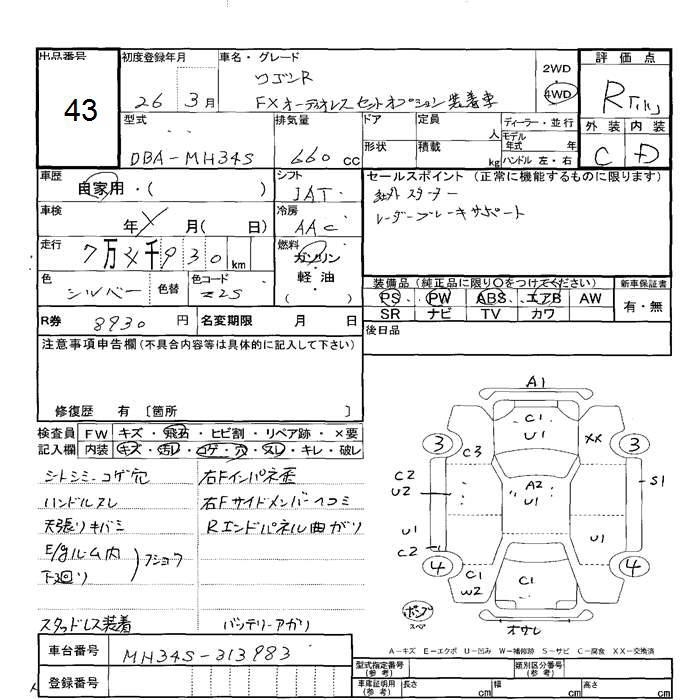 出品番号
43
初度登録年月
26 3月
車名・グレード
ワゴンR
FX オーディオレス セットオプション 装着車
2WD
4WD
評価点
R
外装 内装
C D
型式
DBA-MH34S
排気量
660 cc
ドア 定員 人
形状 積載 kg
ディーラー・並行
モデル年式 年
ハンドル 左・右
車歴
自家用・( )
シフト
IAT
車検
年 月( 日)
冷房
AAC
走行
7万 千930 km
燃料
ガソリン
軽・油
( )
色
シルバー
色替
色コード
Z2S
R券 8930 円
名変期限 月 日
セールスポイント (正常に機能するものに限ります)
社外スターター
レーダーブレーキサポート
装備品 (純正品に限り〇をつけてください)
新車保証書
PS PW ABS エアB AW
SR ナビ TV カワ
有・無
後日品
注意事項申告欄 (不具合内容等は具体的に記入して下さい)
修復歴 有 [箇所 ]
検査員記入欄
FW キズ・飛石・ヒビ割・リペア跡・×要
内装 キズ・汚レ・コゲ・穴・スレ・キレ・破レ
シートシミ・コゲ穴
ハンドルスレ
天張リキバミ
E/gルーム内
下廻リ
フショク
スタッドレス装着
右Fインパネ歪
右Fサイドメンバーヘコミ
Rエンドパネル曲ガリ
バッテリーアガリ
A1
C1
U1
XX
3
3
C3
C2
U2
A2
U1
S1
U1
C2
U1
4
4
C1
W2
C1
ポンプ
スペア
オサレ
A-キズ E-エクボ U-凹み W-補修跡 S-サビ C-腐食 XX-交換済
車台番号 MH34S-313983
登録番号
型式指定番号 (参考)
類別区分番号 (参考)
車庫証明用 (参考)
長さ cm
幅 cm
高さ cm